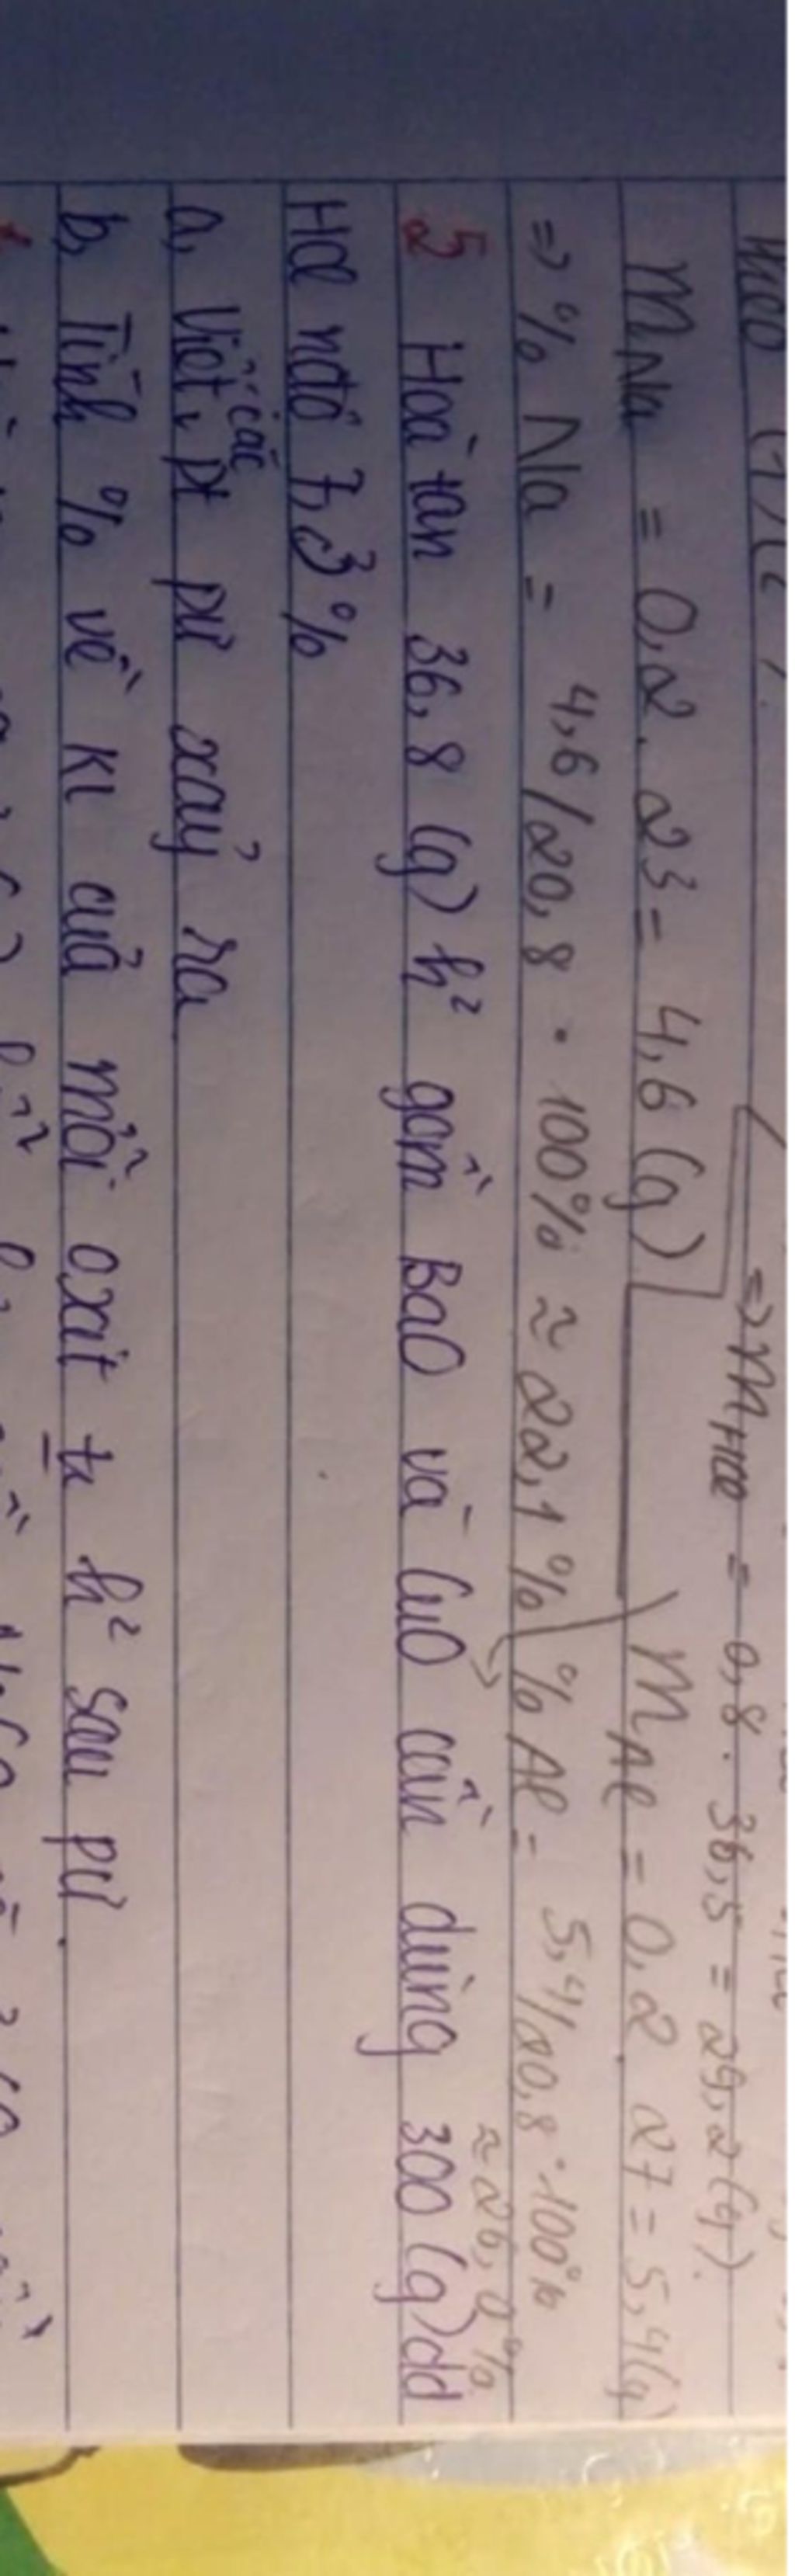 => mHCl = 0,8 . 36,5 = 29,2 (g).
mNa = 0,2 . 23 = 4,6 (g) mAl = 0,2 . 27 = 5,4 (g)
=> % Na = 4,6/20,8 . 100% ≈ 22,1% % Al = 5,4/20,8 . 100%
≈ 26,0%
5 Hoà tan 36,8 (g) h² gồm BaO và CuO cần dùng 300 (g) dd
HCl nđộ 7,3%
a, Viết các pt pư xảy ra
b, Tính % về kl của mỗi oxit từ h² sau pư.